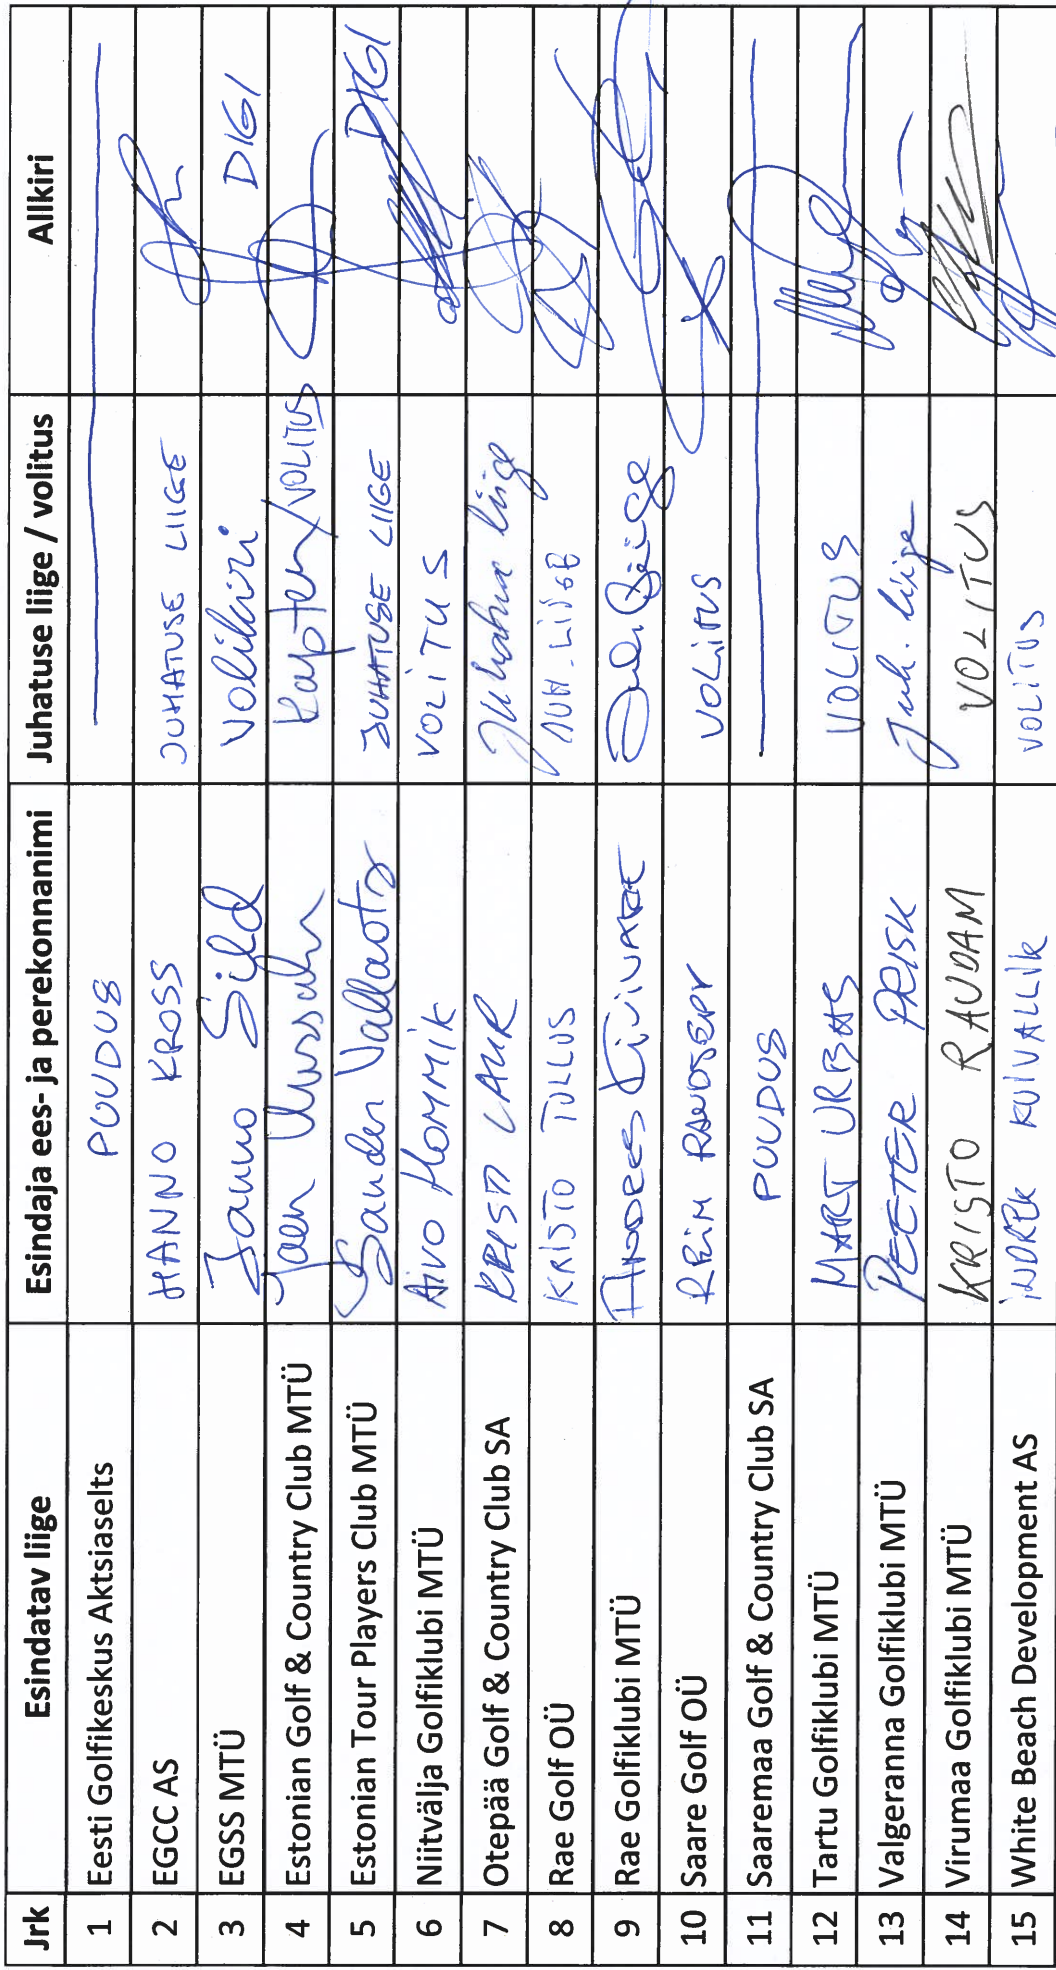 Jrk Esindatav liige Esindaja ees- ja perekonnanimi Juhatuse liige / volitus Allkiri
1 Eesti Golfikeskus Aktsiaselts PUUDUS
2 EGCC AS HANNO KROSS JUHATUSE LIIGE
3 EGSS MTÜ Janno Sild Volikiri DIGI
4 Estonian Golf & Country Club MTÜ Jaen Kapten/VOLITUS
5 Estonian Tour Players Club MTÜ Sander Vallaots JUHATUSE LIIGE DIGI
6 Niitvälja Golfiklubi MTÜ AIVO HOMMIK VOLITUS
7 Otepää Golf & Country Club SA KRISTI LAUR Juhatuse liige
8 Rae Golf OÜ KRISTO TULLUS JUH. LIIGE
9 Rae Golfiklubi MTÜ ANDRES KIVIVARE
10 Saare Golf OÜ REIN RAUDSEPP VOLITUS
11 Saaremaa Golf & Country Club SA PUUDUS
12 Tartu Golfiklubi MTÜ MART URBAS VOLITUS
13 Valgeranna Golfiklubi MTÜ PEETER PRISK Juh. liige
14 Virumaa Golfiklubi MTÜ KRISTO RAUDAM VOLITUS
15 White Beach Development AS INDREK KUIVALLIK VOLITUS